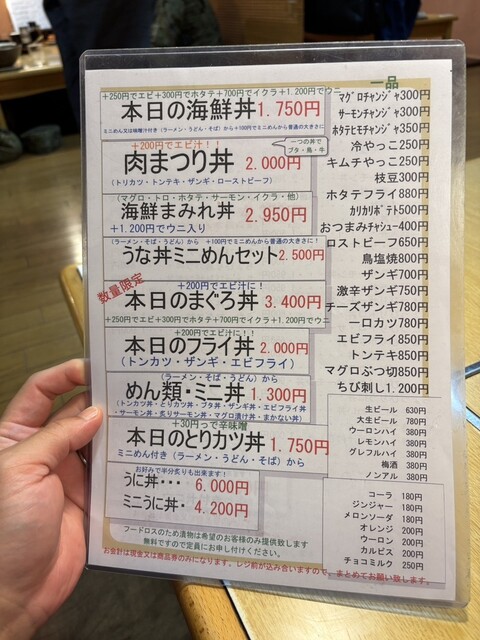 +250円でエビ+300円でホタテ+700円でイクラ+1.200円でウニ
本日の海鮮丼1.750円
ミニめん又は味噌汁付き(ラーメン・うどん・そば)から+100円でミニめんから普通の大きさに
+200円でエビ汁!!
一つの丼で
ブタ・鳥・牛
肉まつり丼 2.000円
(トリカツ・トンテキ・ザンギ・ローストビーフ)
(マグロ・トロ・ホタテ・サーモン・イクラ・他)
海鮮まみれ丼 2.950円
+1.200円でウニ入り
(ラーメン・そば・うどん)から +100円でミニめんから普通の大きさに!
うな丼ミニめんセット2.500円
数量限定
+200円でエビ汁に!
本日のまぐろ丼 3.400円
+250円でエビ+300円でホタテ+700円でイクラ+1.200円でウニ
+200円でエビ汁に!!
本日のフライ丼 2.000円
(トンカツ・ザンギ・エビフライ)
(ラーメン・そば・うどん)から
めん類・ミニ丼 1.300円
(トンカツ丼・とりカツ丼・ブタ丼・ザンギ丼・エビフライ丼
・サーモン丼・炙りサーモン丼・マグロ漬け丼・まかない丼)
+30円っで辛味噌
本日のとりカツ丼 1.750円
ミニめん付き(ラーメン・うどん・そば)から
お好みで半分炙りも出来ます!
うに丼・・・ 6.000円
ミニうに丼・ 4.200円
フードロスのため漬物は希望のお客様のみ提供致します
無料ですので定員にお申し付けください。
お会計は現金又は商品券のみになります、レジ前が込み合いますので、まとめてお願い致します。
一品
マグロチャンジャ300円
サーモンチャンジャ300円
ホタテヒモチャンジャ350円
冷やっこ250円
キムチやっこ250円
枝豆300円
ホタテフライ880円
カリカリポテト500円
おつまみチャシュー400円
ローストビーフ650円
鳥塩焼800円
ザンギ700円
激辛ザンギ750円
チーズザンギ780円
一口カツ780円
エビフライ850円
トンテキ850円
マグロぶつ切850円
ちび刺し1.200円
生ビール 630円
大生ビール 780円
ウーロンハイ 380円
レモンハイ 380円
グレフルハイ 380円
梅酒 380円
ノンアル 380円
コーラ 180円
ジンジャー 180円
メロンソーダ 180円
オレンジ 200円
ウーロン 200円
カルピス 200円
チョコミルク 250円